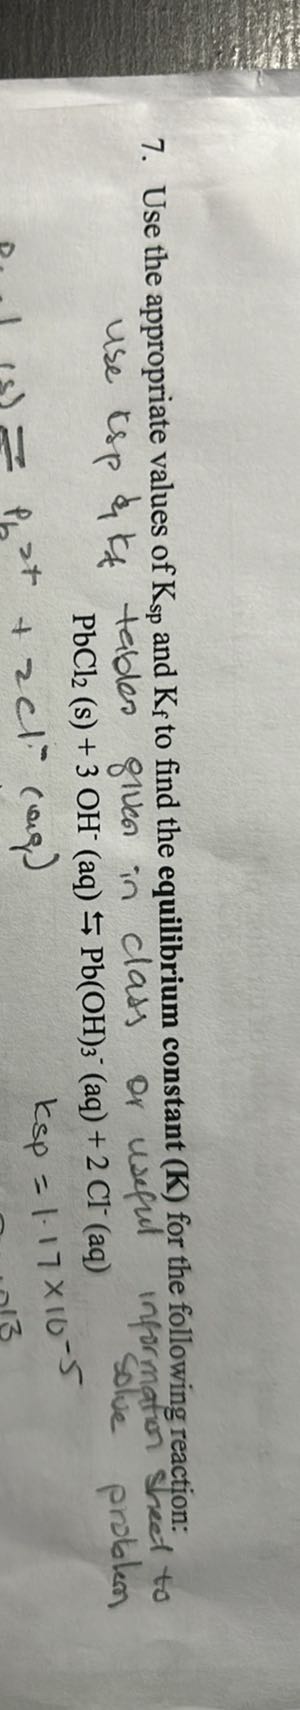 7. Use the appropriate values of Ksp and Kf to find the equilibrium constant (K) for the following reaction:
use Ksp & Kf tables given in class or useful information sheet to
solve problem
PbCl₂ (s) + 3 OH⁻ (aq) ⇆ Pb(OH)₃⁻ (aq) + 2 Cl⁻ (aq)
(s) ⇌ Pb²⁺ + 2Cl⁻ (aq) Ksp = 1.17 × 10⁻⁵